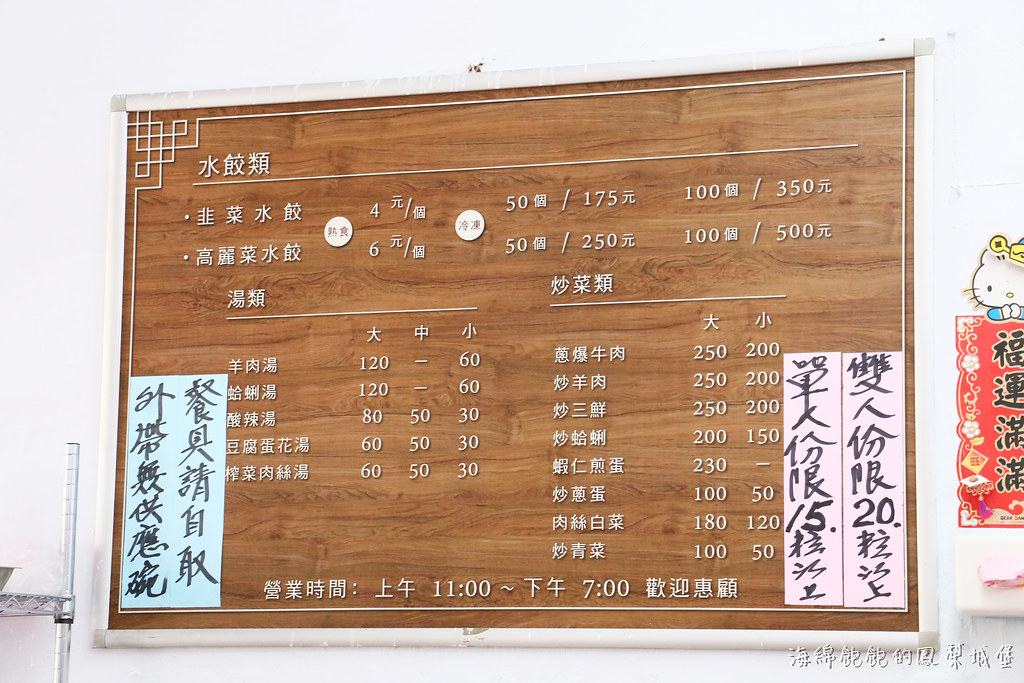 水餃類
·韭菜水餃 熟食 4元/個 冷凍 50個 / 175元 100個 / 350元
·高麗菜水餃 6元/個 50個 / 250元 100個 / 500元
湯類
大 中 小
羊肉湯 120 － 60
蛤蜊湯 120 － 60
酸辣湯 80 50 30
豆腐蛋花湯 60 50 30
榨菜肉絲湯 60 50 30
炒菜類
大 小
蔥爆牛肉 250 200
炒羊肉 250 200
炒三鮮 250 200
炒蛤蜊 200 150
蝦仁煎蛋 230 －
炒蔥蛋 100 50
肉絲白菜 180 120
炒青菜 100 50
營業時間: 上午 11:00～下午 7:00 歡迎惠顧
餐具請自取
外帶無供應碗
雙人份限20.粒以上
單人份限15.粒以上
福運滿滿
旺
海綿飽飽的鳳梨城堡